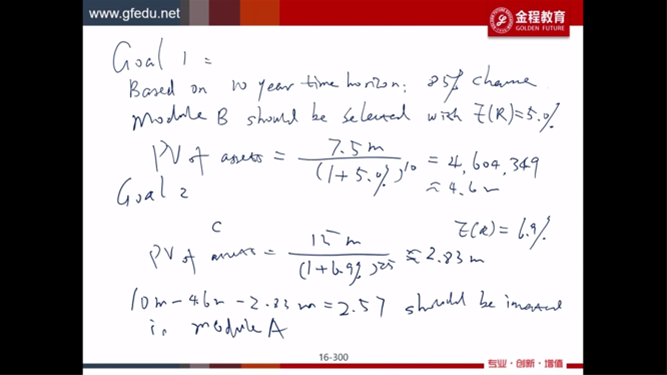 www.gfedu.net
金程教育
GOLDEN FUTURE
Goal 1 =
Based on 10 year time horizon; 85% chance
Module B should be selected with E(R)=5.0%
PV of assets = 7.5m / (1+5.0%)^10 = 4,604,349
≈ 4.6m
Goal 2
C
E(R) = 6.9%
PV of assets = 15m / (1+6.9%)^25 ≈ 2.83m
10m - 4.6m - 2.83m = 2.57 should be invested
in module A
16-300
专业·创新·增值